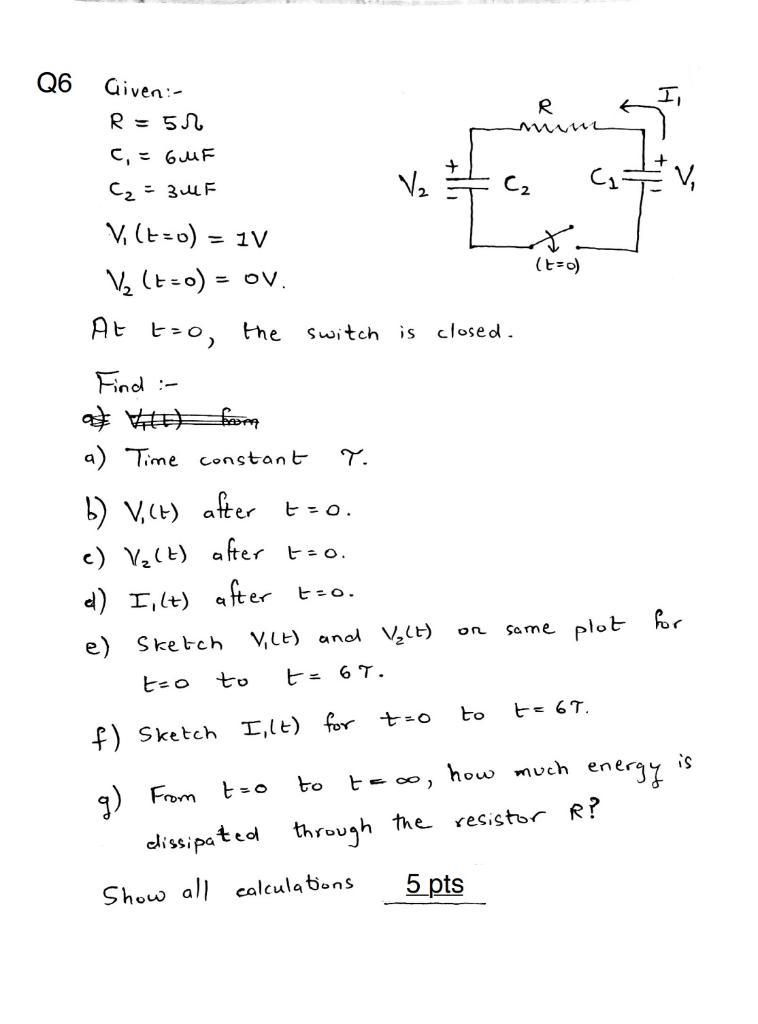 Q6 Given:-
R = 5Ω
C₁ = 6μF
C₂ = 3μF
V₁ (t=0) = 1V
V₂ (t=0) = 0V.
R
I₁
+
V₂
C₂
-
+
C₁
V₁
-
(t=0)
At t=0, the switch is closed.
Find :-
a) V₁(t) from
a) Time constant τ.
b) V₁(t) after t=0.
c) V₂(t) after t=0.
d) I₁(t) after t=0.
e) Sketch V₁(t) and V₂(t) on same plot for
t=0 to t= 6τ.
f) Sketch I₁(t) for t=0 to t= 6τ.
g) From t=0 to t=∞, how much energy is
dissipated through the resistor R?
Show all calculations 5 pts